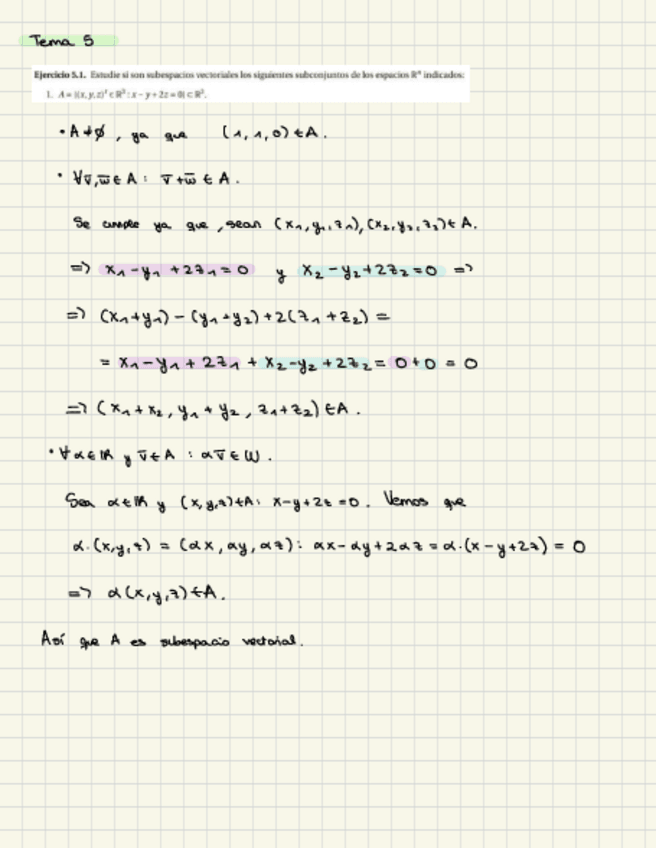 Tema 5
Ejercicio 5.1. Estudie si son subespacios vectoriales los siguientes subconjuntos de los espacios ℝⁿ indicados:
1. A = {(x, y, z)ᵗ ∈ ℝ³ : x − y + 2z = 0} ⊂ ℝ³.
• A ≠ ∅, ya que (1, 1, 0) ∈ A.
• ∀v̄, w̄ ∈ A : v̄ + w̄ ∈ A.
Se cumple ya que, sean (x₁, y₁, z₁), (x₂, y₂, z₂) ∈ A.
=> x₁ − y₁ + 2z₁ = 0 y x₂ − y₂ + 2z₂ = 0 =>
=> (x₁ + y₁) − (y₁ + y₂) + 2(z₁ + z₂) =
= x₁ − y₁ + 2z₁ + x₂ − y₂ + 2z₂ = 0 + 0 = 0
=> (x₁ + x₂, y₁ + y₂, z₁ + z₂) ∈ A.
• ∀α ∈ ℝ y v̄ ∈ A : αv̄ ∈ W.
Sea α ∈ ℝ y (x, y, z) ∈ A : x − y + 2z = 0. Vemos que
α·(x, y, z) = (αx, αy, αz) : αx − αy + 2αz = α·(x − y + 2z) = 0
=> α(x, y, z) ∈ A.
Así que A es subespacio vectorial.